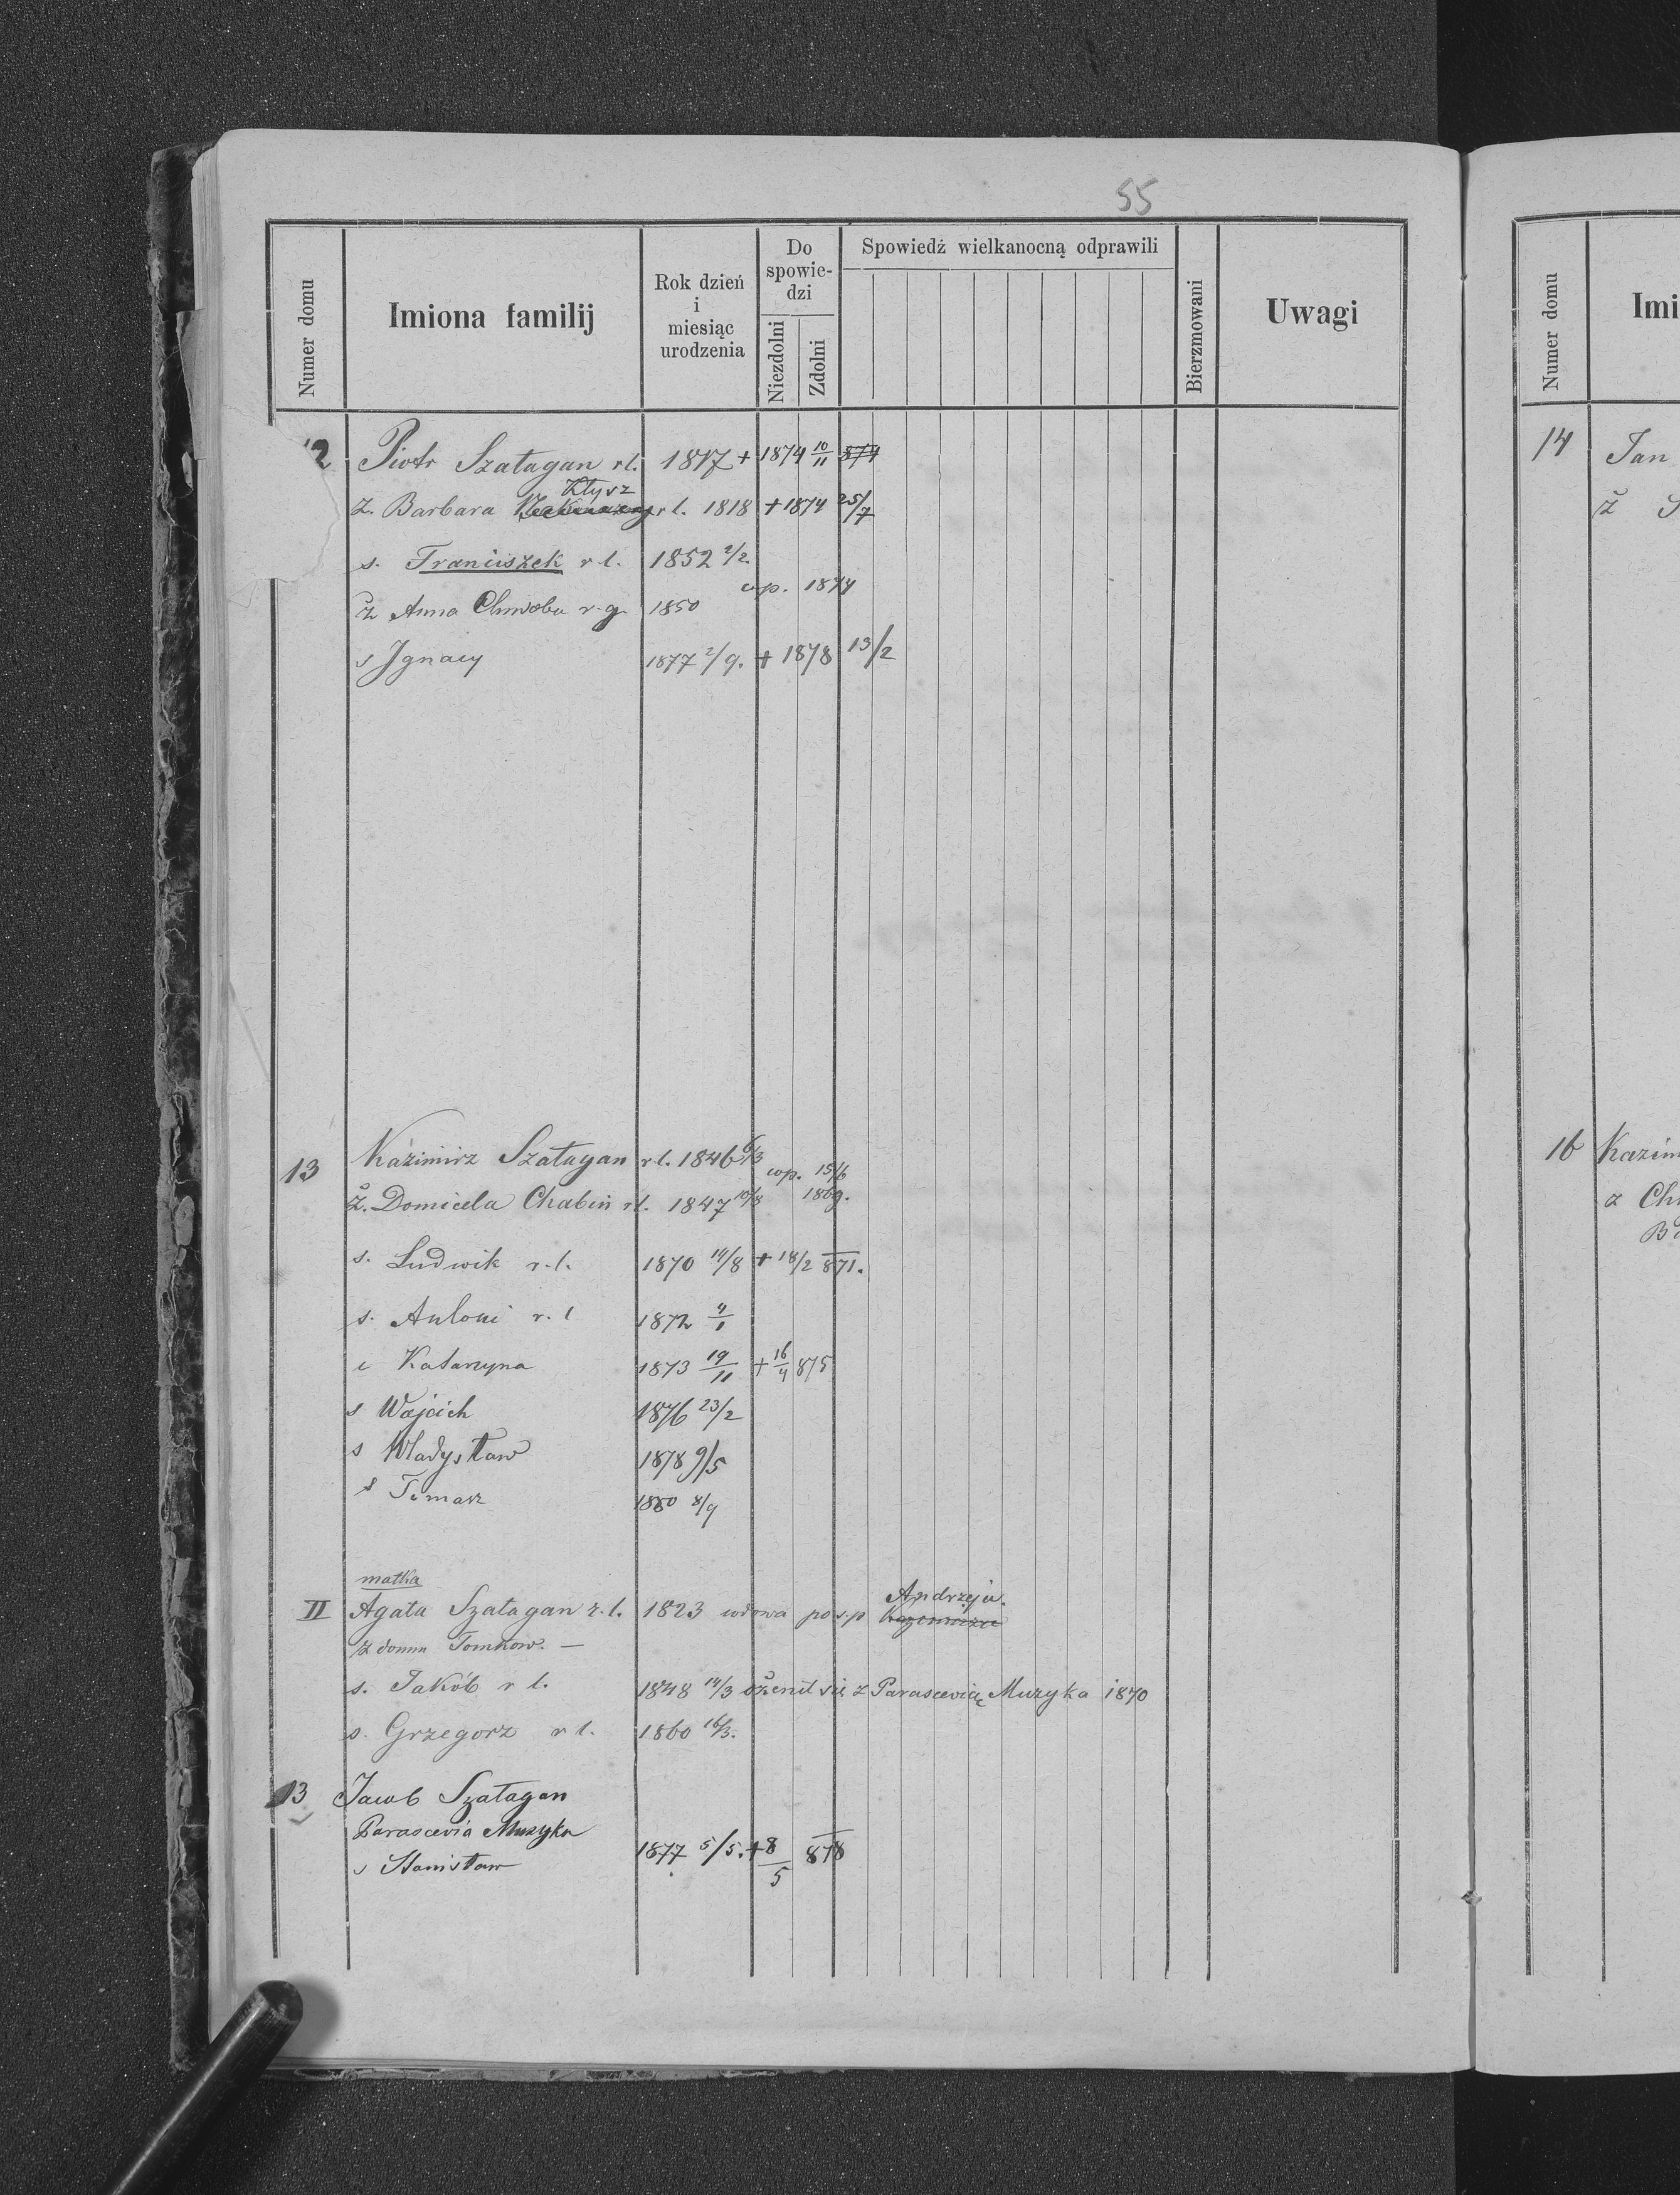 55
Numer domu
Imiona familij
Rok dzień i miesiąc urodzenia
Do spowiedzi
Niezdolni
Zdolni
Spowiedź wielkanocną odprawili
Bierzmowani
Uwagi
12 Piotr Szałagan r l. 1817 + 1874 10/11 874
Kłysz
ż. Barbara r l. 1818 + 1874 25/7
s. Franciszek r l. 1852 2/2
cop. 1874
ż Anna Chwoba r-g. 1850
s Jgnacy 1877 2/9. + 1878 13/2
13 Kaźimirz Szałagan r l. 1846 6/3
cop. 15/6
ż. Domicela Chabin r l. 1847 10/8 1869.
s. Ludwik r. l. 1870 14/8 + 18/2 871.
s. Antoni r. l 1872 4/1
c Katarzyna 1873 19/11 + 16/4 875
s Wojcich 1876 23/2
s Władysław 1878 9/5
s Tomasz 1880 8/9
matka
Andrzeju.
II Agata Szałagan r. l. 1823 wdowa po s.p Kazimierzu
z domu Tomkow. —
s. Jakób r l. 1848 14/3 ożenił się z Parascevią Muzyka 1870
s. Grzegorz r l. 1860 16/3.
13 Jacob Szałagan
Parascevia Muzyka
s Stanisław 1877 5/5. + 8/5 878
Numer domu
Imi
14 Jan
ż S
16 Kazim
z Ch